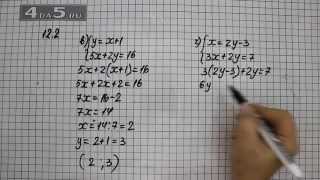 4APP5.RU
12.2
в) { y = x+1
5x+2y=16
5x+2(x+1)=16
5x+2x+2=16
7x=16-2
7x=14
x=14:7=2
y=2+1=3
(2;3)
г) { x=2y-3
3x+2y=7
3(2y-3)+2y=7
6y